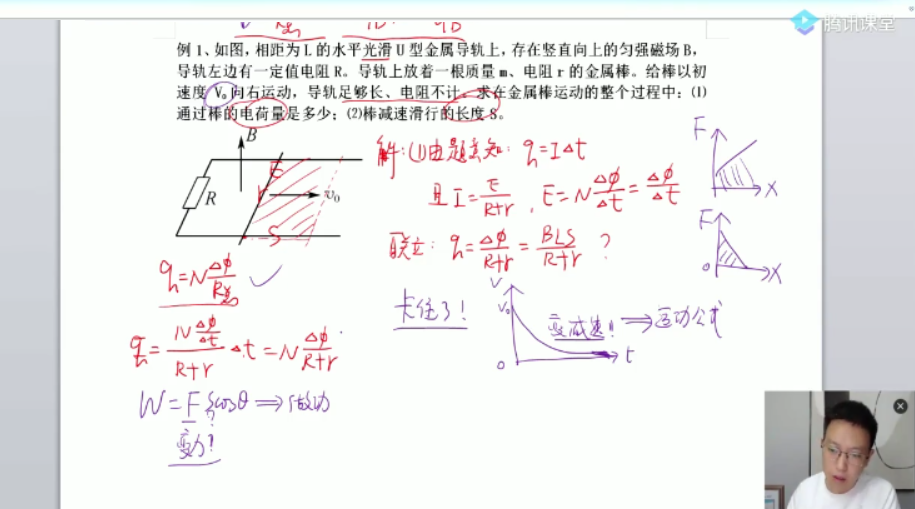 腾讯课堂
例 1、如图，相距为 L 的水平光滑 U 型金属导轨上，存在竖直向上的匀强磁场 B，
导轨左边有一定值电阻 R。导轨上放着一根质量 m、电阻 r 的金属棒。给棒以初
速度 V₀ 向右运动，导轨足够长、电阻不计。求在金属棒运动的整个过程中：⑴
通过棒的电荷量是多少；⑵棒减速滑行的长度 S。
B
R
E
r
v₀
S
解：(1)由题意知：q=IΔt
且 I=E/(R+r)，E=NΔφ/Δt=Δφ/Δt
联立：q=Δφ/(R+r)=BLS/(R+r) ？
F
X
F
0
X
q=NΔφ/R总 ✓
q=(NΔφ/Δt)/(R+r)·Δt=NΔφ/(R+r)
W=F·Scosθ⇒做功
?
变力！
卡住了！
V
V₀
变减速！！⇒运动公式
0
t